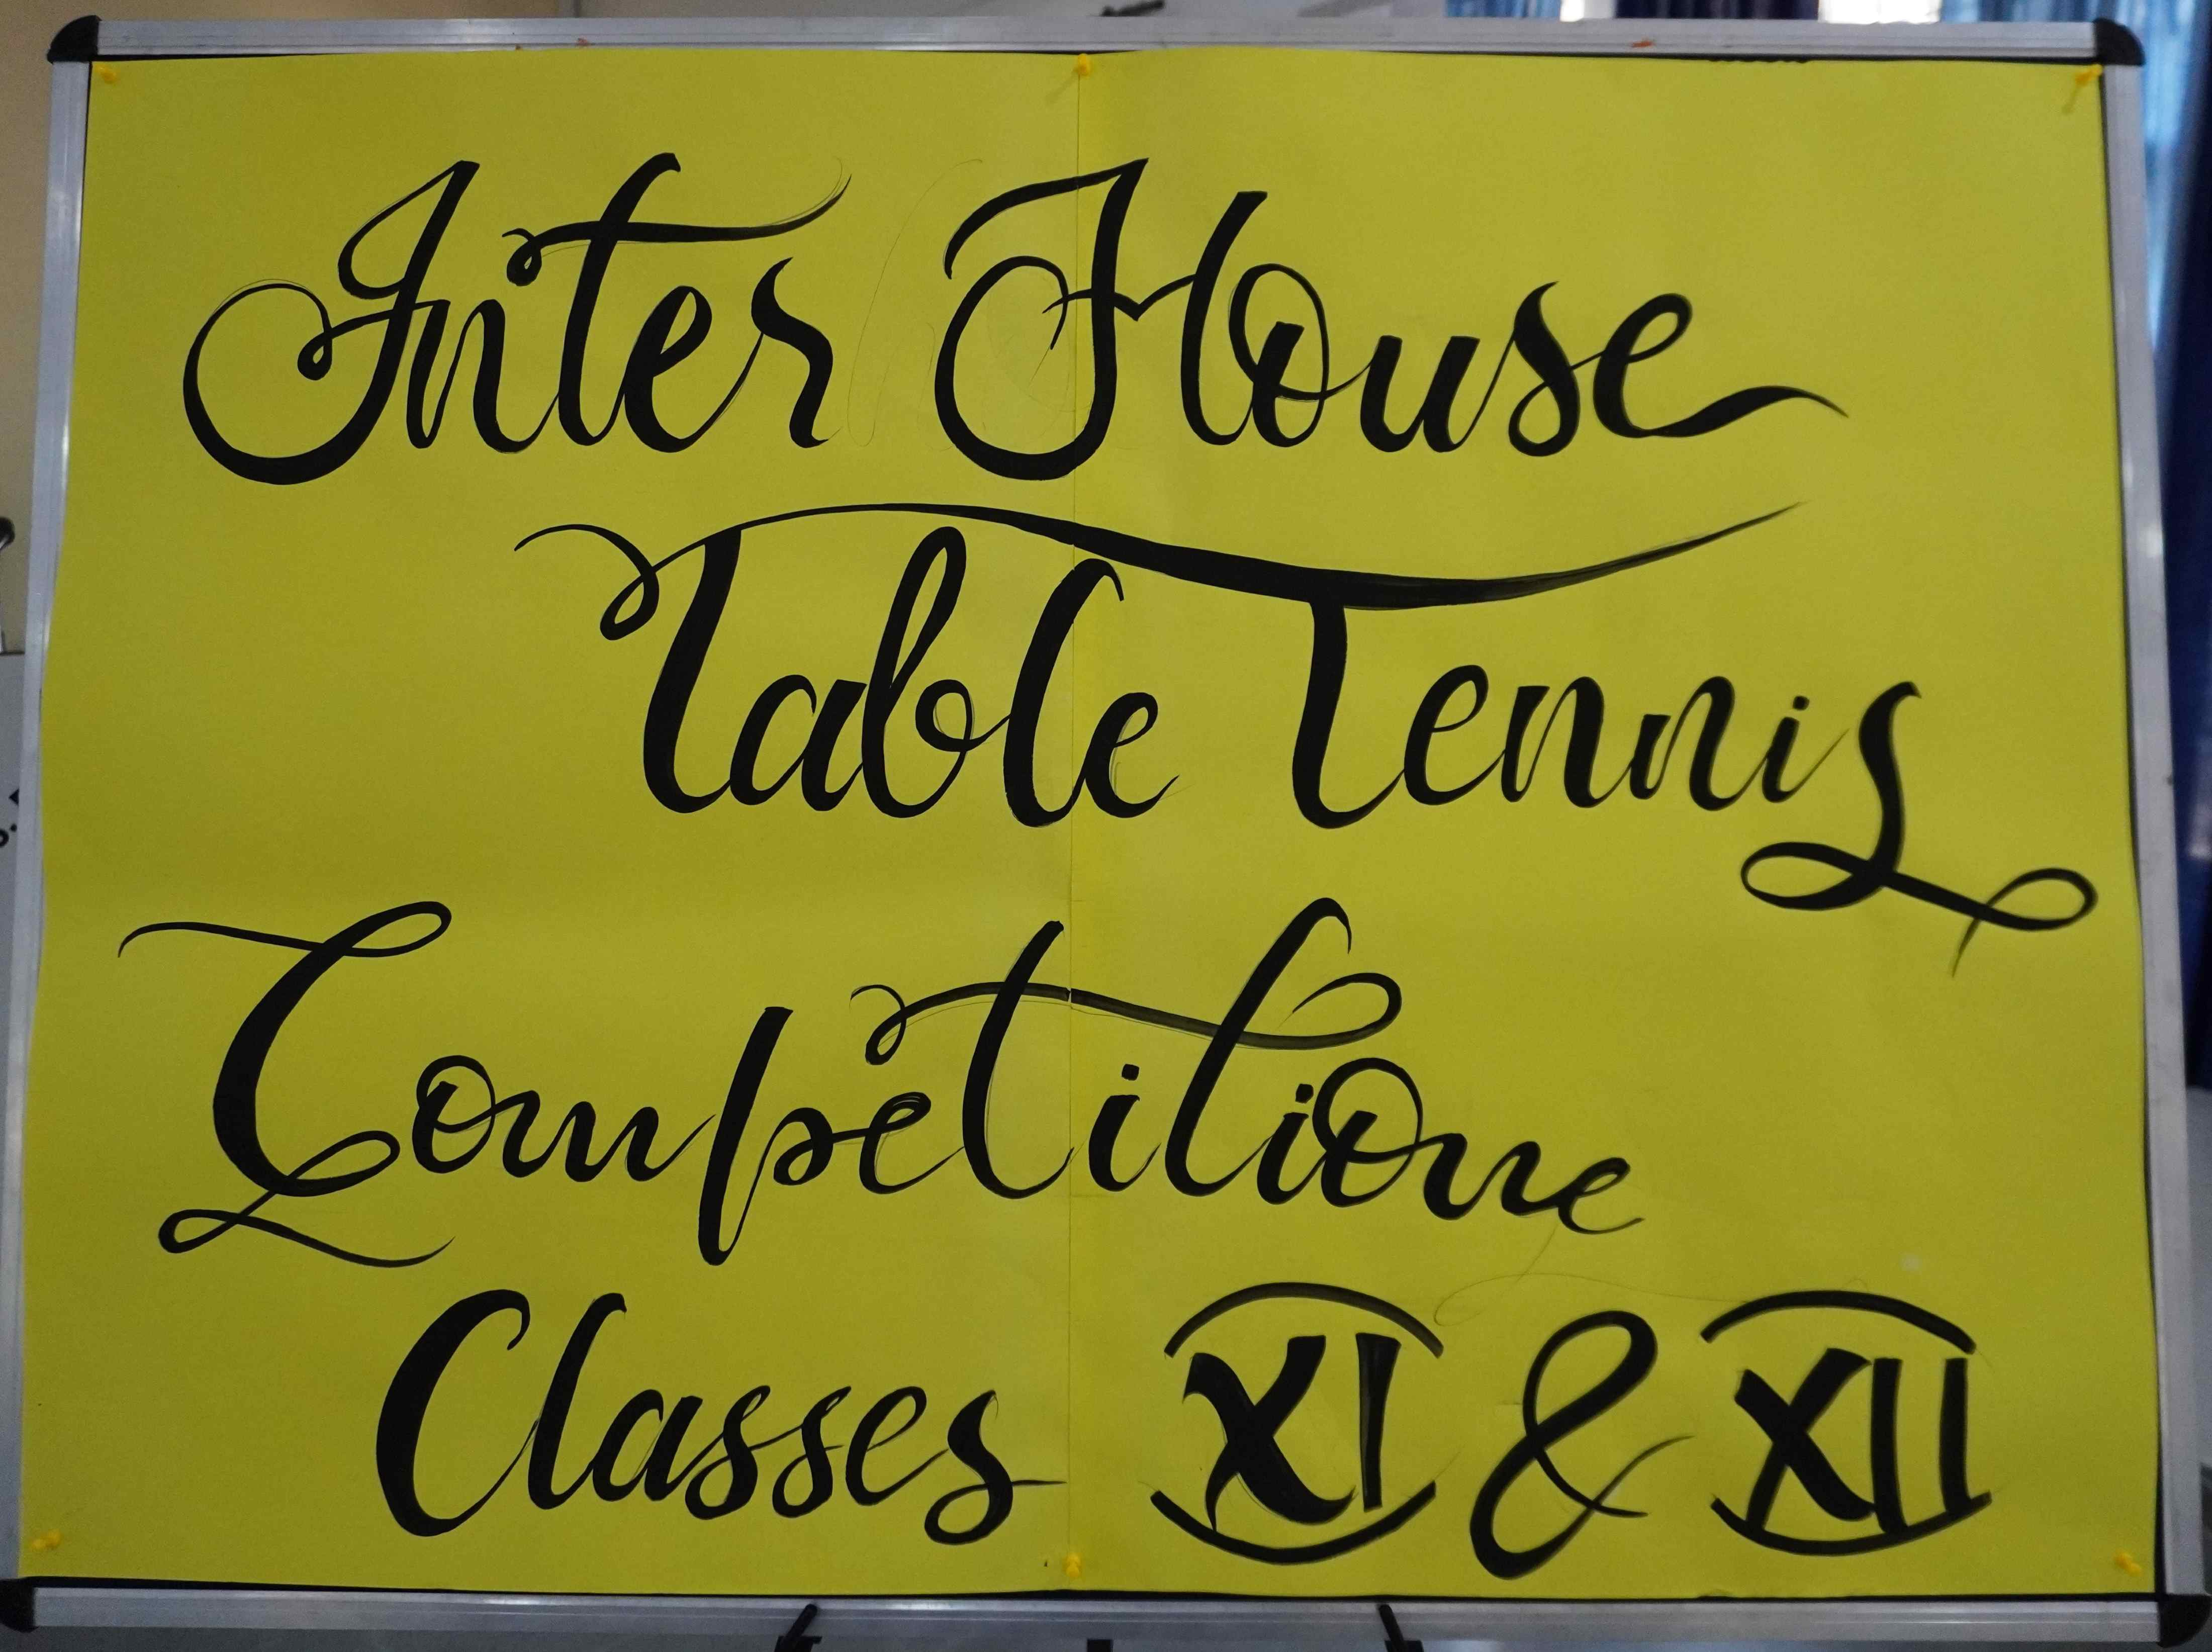 Inter House
Table Tennis
Competitione
Classes XI & XII